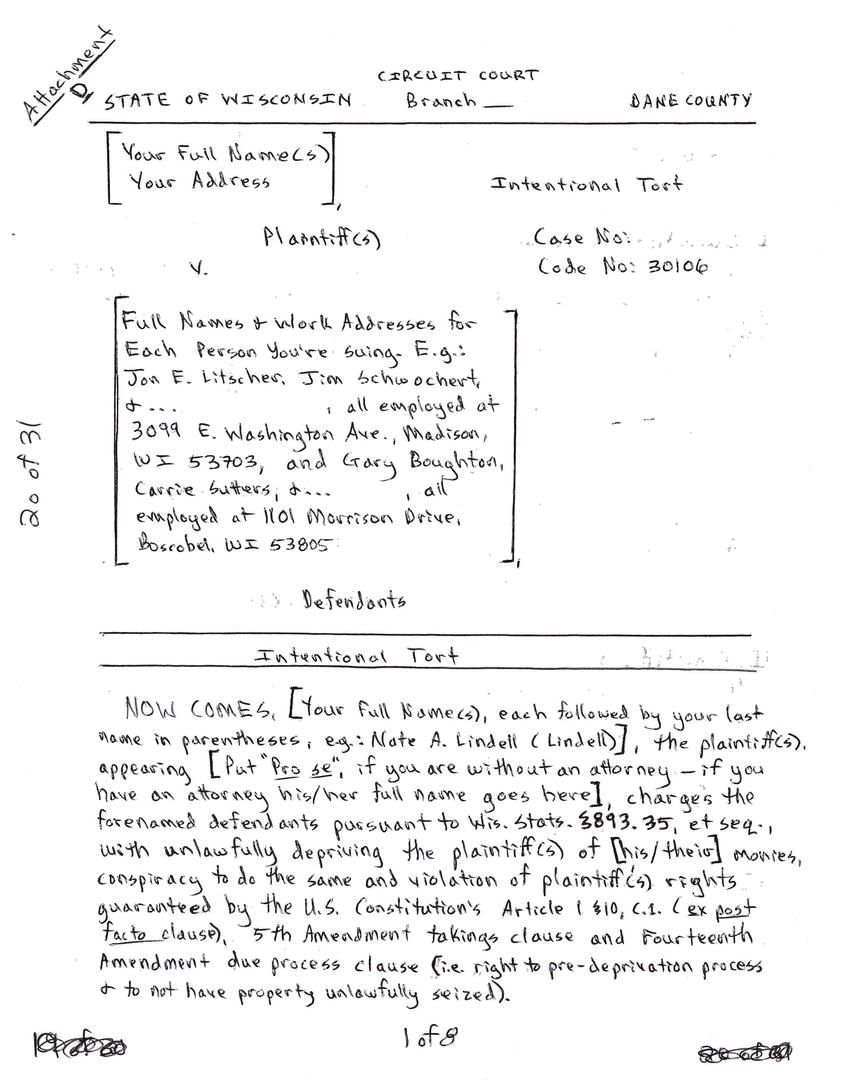 Attachment
D
CIRCUIT COURT
STATE OF WISCONSIN Branch __ DANE COUNTY
[Your Full Name(s)
Your Address],
Intentional Tort
Plaintiff(s)
Case No:
v.
Code No: 30106
[Full Names & Work Addresses for
Each Person You're suing. E.g.:
Jon E. Litscher, Jim Schwochert,
& ... , all employed at
3099 E. Washington Ave., Madison,
WI 53703, and Gary Boughton,
Carrie Sutters, &... , all
employed at 1101 Morrison Drive,
Boscobel, WI 53805],
20 of 31
Defendants
Intentional Tort
NOW COMES, [Your Full Name(s), each followed by your last
name in parentheses, e.g.: Nate A. Lindell (Lindell)], the plaintiff(s),
appearing [Put "Pro se", if you are without an attorney – if you
have an attorney his/her full name goes here], charges the
forenamed defendants pursuant to Wis. Stats. §893.35, et seq.,
with unlawfully depriving the plaintiff(s) of [his/their] monies,
conspiracy to do the same and violation of plaintiff(s) rights
guaranteed by the U.S. Constitution's Article 1 §10, C.1. (ex post
facto clause), 5th Amendment takings clause and Fourteenth
Amendment due process clause (i.e. right to pre-deprivation process
& to not have property unlawfully seized).
1 of 8